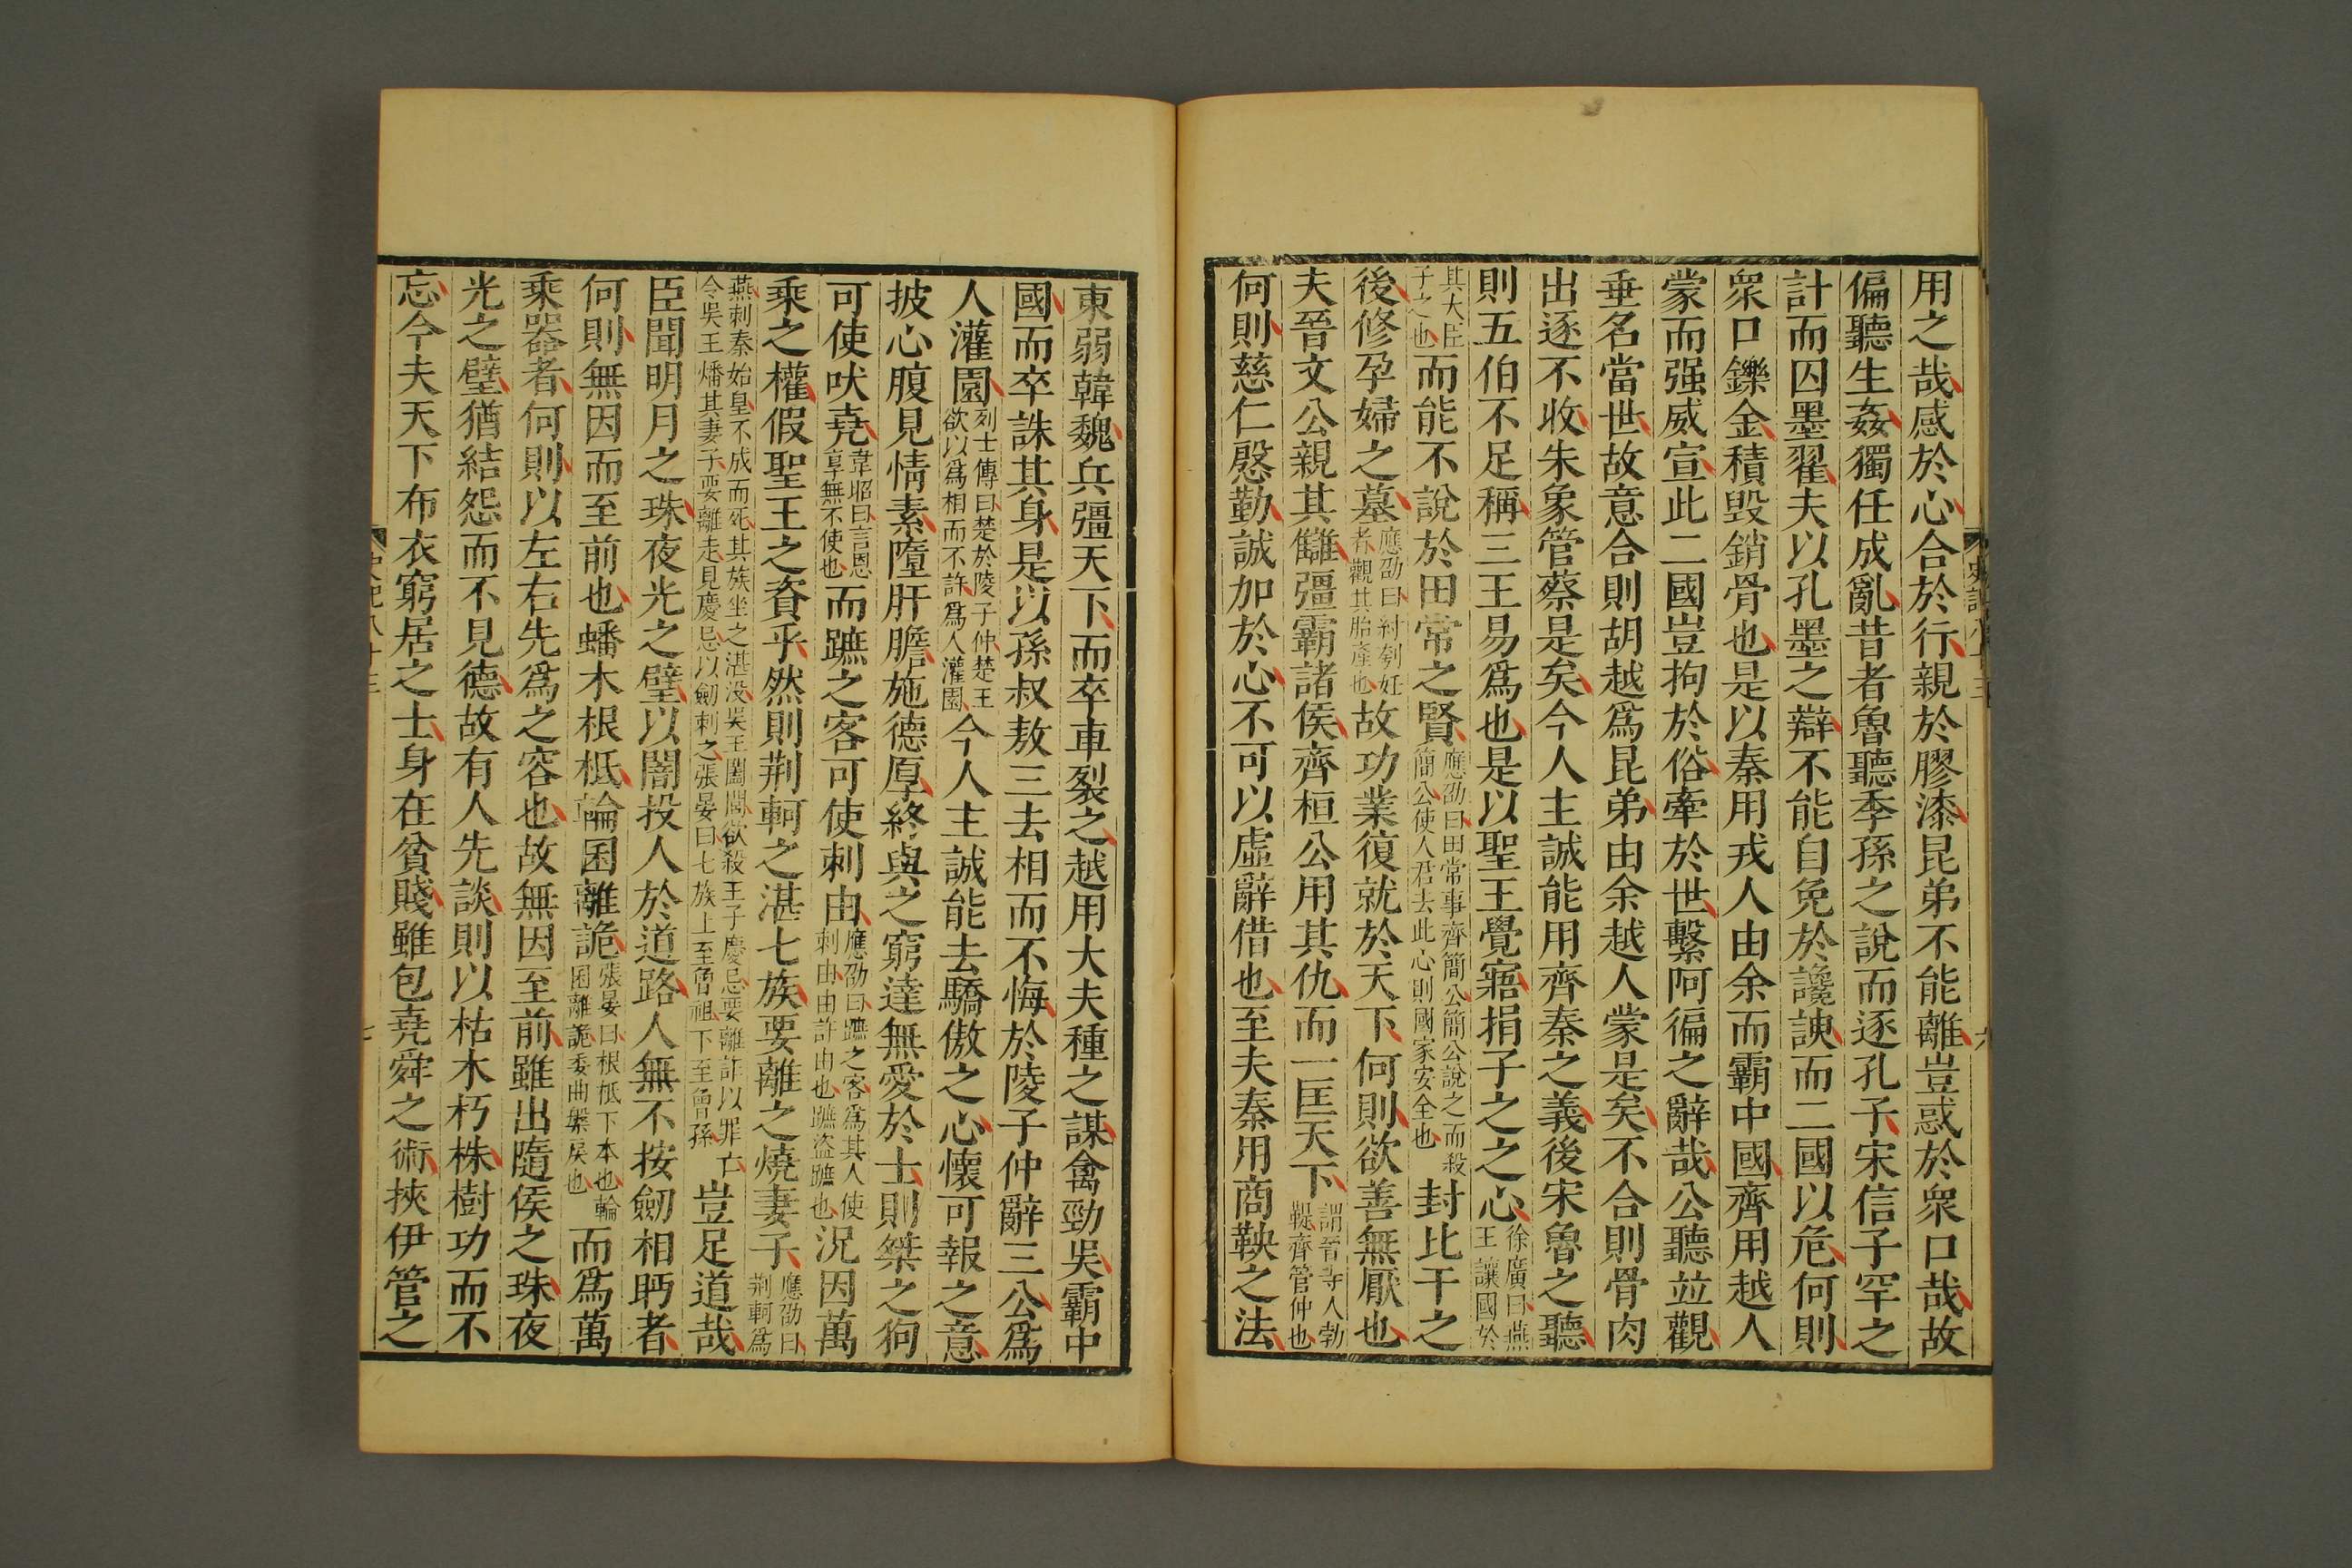 用之哉感於心合於行親於膠漆昆弟不能離豈惑於衆口哉故
偏聽生姦獨任成亂昔者魯聽季孫之說而逐孔子宋信子罕之
計而囚墨翟夫以孔墨之辯不能自免於讒諛而二國以危何則
衆口鑠金積毀銷骨也是以秦用戎人由余而霸中國齊用越人
蒙而强威宣此二國豈拘於俗牽於世繫阿徧之辭哉公聽竝觀
垂名當世故意合則胡越爲昆弟由余越人蒙是矣不合則骨肉
出逐不收朱象管蔡是矣今人主誠能用齊秦之義後宋魯之聽
則五伯不足稱三王易爲也是以聖王覺寤捐子之之心徐廣曰燕王讓國於
其大臣子之也而能不說於田常之賢應劭曰田常事齊簡公簡公說之而殺簡公使人君去此心則國家安全也封比干之
後修孕婦之墓應劭曰紂刳妊者觀其胎產也故功業復就於天下何則欲善無厭也
夫晉文公親其讎彊霸諸侯齊桓公用其仇而一匡天下謂晉寺人勃鞮齊管仲也
何則慈仁慇勤誠加於心不可以虛辭借也至夫秦用商鞅之法
東弱韓魏兵彊天下而卒車裂之越用大夫種之謀禽勁吳霸中
國而卒誅其身是以孫叔敖三去相而不悔於陵子仲辭三公爲
人灌園列士傳曰楚於陵子仲楚王欲以爲相而不許爲人灌園今人主誠能去驕傲之心懷可報之意
披心腹見情素墮肝膽施德厚終與之窮達無愛於士則桀之狗
可使吠堯韋昭曰言恩享無不使也而蹠之客可使刺由應劭曰蹠之客爲其人使刺由由許由也蹠盜蹠也況因萬
乘之權假聖王之資乎然則荆軻之湛七族要離之燒妻子應劭曰荆軻爲
燕刺秦始皇不成而死其族坐之湛没吳王闔閭欲殺王子慶忌要離詐以罪亡令吳王燔其妻子要離走見慶忌以劒刺之張晏曰七族上至曾祖下至曾孫豈足道哉
臣聞明月之珠夜光之璧以闇投人於道路人無不按劒相眄者
何則無因而至前也蟠木根柢輪囷離詭張晏曰根柢下本也輪囷離詭委曲槃戾也而爲萬
乘器者何則以左右先爲之容也故無因至前雖出隨侯之珠夜
光之璧猶結怨而不見德故有人先談則以枯木朽株樹功而不
忘今夫天下布衣窮居之士身在貧賤雖包堯舜之術挾伊管之